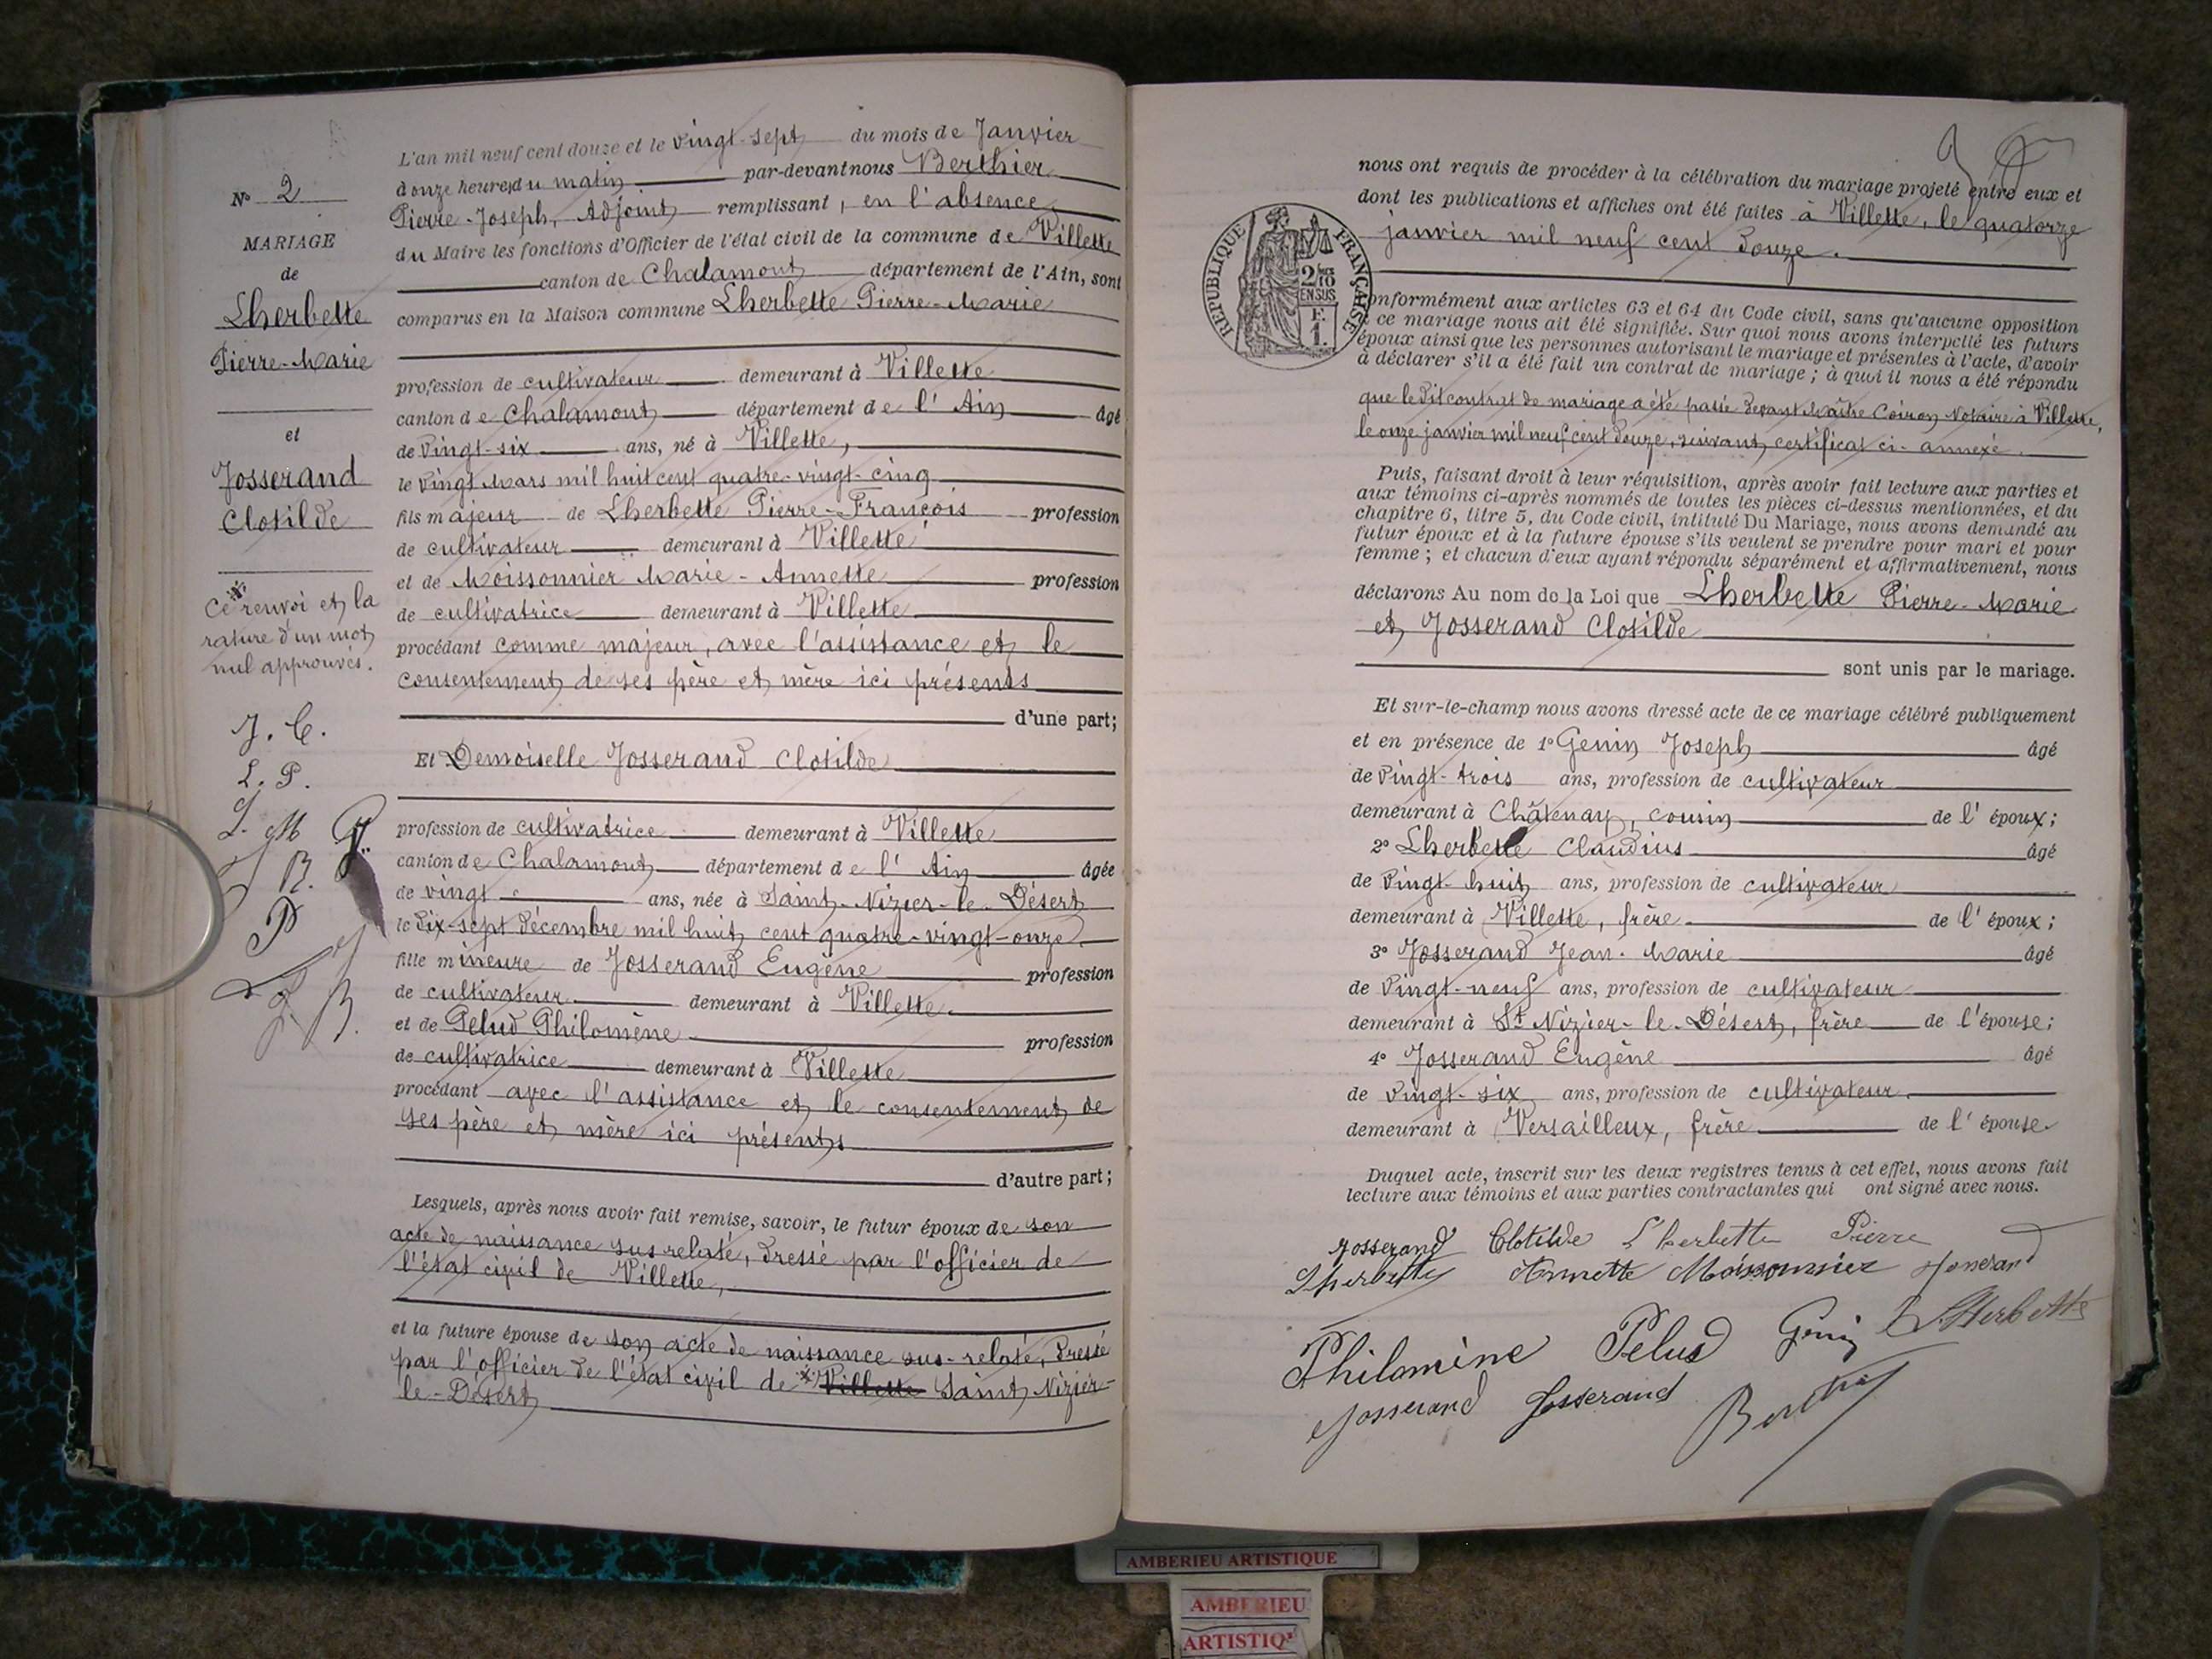 N° 2
MARIAGE
de
Lherbette
Pierre-Marie
et
Josserand
Clotilde
Ce renvoi et la
rature d'un mot
nul approuvés.
J. C.
L. P.
L. M
B.
P
J. B.
L'an mil neuf cent douze et le vingt-sept du mois de Janvier
à onze heures du matin par-devant nous Berthier
Pierre-Joseph, Adjoint remplissant, en l'absence
du Maire les fonctions d'Officier de l'état civil de la commune de Villette
canton de Chalamont département de l'Ain, sont
comparus en la Maison commune Lherbette Pierre-Marie
profession de cultivateur demeurant à Villette
canton de Chalamont département de l'Ain âgé
de vingt-six ans, né à Villette,
le vingt Mars mil huit cent quatre-vingt-cinq
fils majeur de Lherbette Pierre-François profession
de cultivateur demeurant à Villette
et de Moissonnier Marie-Annette profession
de cultivatrice demeurant à Villette
procédant comme majeur, avec l'assistance et le
consentement de ses père et mère ici présents
d'une part;
Et Demoiselle Josserand Clotilde
profession de cultivatrice demeurant à Villette
canton de Chalamont département de l'Ain âgée
de vingt ans, née à Saint-Nizier-le-Désert
le dix-sept décembre mil huit cent quatre-vingt-onze
fille mineure de Josserand Eugène profession
de cultivateur demeurant à Villette
et de Pelud Philomène profession
de cultivatrice demeurant à Villette
procédant avec l'assistance et le consentement de
ses père et mère ici présents
d'autre part;
Lesquels, après nous avoir fait remise, savoir, le futur époux de son
acte de naissance sus relaté, dressé par l'officier de
l'état civil de Villette,
et la future épouse de son acte de naissance sus-relaté, dressé
par l'officier de l'état civil de Villette Saint Nizier-
le-Désert
nous ont requis de procéder à la célébration du mariage projeté entre eux et
dont les publications et affiches ont été faites à Villette, le quatorze
janvier mil neuf cent douze.
RÉPUBLIQUE FRANÇAISE
2/10
EN SUS
F.
1.
conformément aux articles 63 et 64 du Code civil, sans qu'aucune opposition
à ce mariage nous ait été signifiée. Sur quoi nous avons interpellé les futurs
époux ainsi que les personnes autorisant le mariage et présentes à l'acte, d'avoir
à déclarer s'il a été fait un contrat de mariage; à quoi il nous a été répondu
que le dit contrat de mariage a été passé devant Maître Coiron Notaire à Villette,
le onze janvier mil neuf cent douze, suivant certificat ci-annexé.
Puis, faisant droit à leur réquisition, après avoir fait lecture aux parties et
aux témoins ci-après nommés de toutes les pièces ci-dessus mentionnées, et du
chapitre 6, titre 5, du Code civil, intitulé Du Mariage, nous avons demandé au
futur époux et à la future épouse s'ils veulent se prendre pour mari et pour
femme; et chacun d'eux ayant répondu séparément et affirmativement, nous
déclarons Au nom de la Loi que Lherbette Pierre-Marie
et Josserand Clotilde
sont unis par le mariage.
Et sur-le-champ nous avons dressé acte de ce mariage célébré publiquement
et en présence de 1° Genin Joseph âgé
de vingt-trois ans, profession de cultivateur
demeurant à Châtenay, cousin de l'époux;
2° Lherbette Claudius âgé
de vingt-huit ans, profession de cultivateur
demeurant à Villette, frère de l'époux;
3° Josserand Jean-Marie âgé
de vingt-neuf ans, profession de cultivateur
demeurant à St Nizier-le-Désert, frère de l'épouse;
4° Josserand Eugène âgé
de vingt-six ans, profession de cultivateur
demeurant à Versailleux, frère de l'épouse.
Duquel acte, inscrit sur les deux registres tenus à cet effet, nous avons fait
lecture aux témoins et aux parties contractantes qui ont signé avec nous.
Josserand Clotilde Lherbette Pierre
Lherbette Annette Moissonnier Josserand
Philomine Pelud Genin Lherbette
Josserand Josserand Berthier
AMBERIEU ARTISTIQUE
AMBERIEU
ARTISTIQ